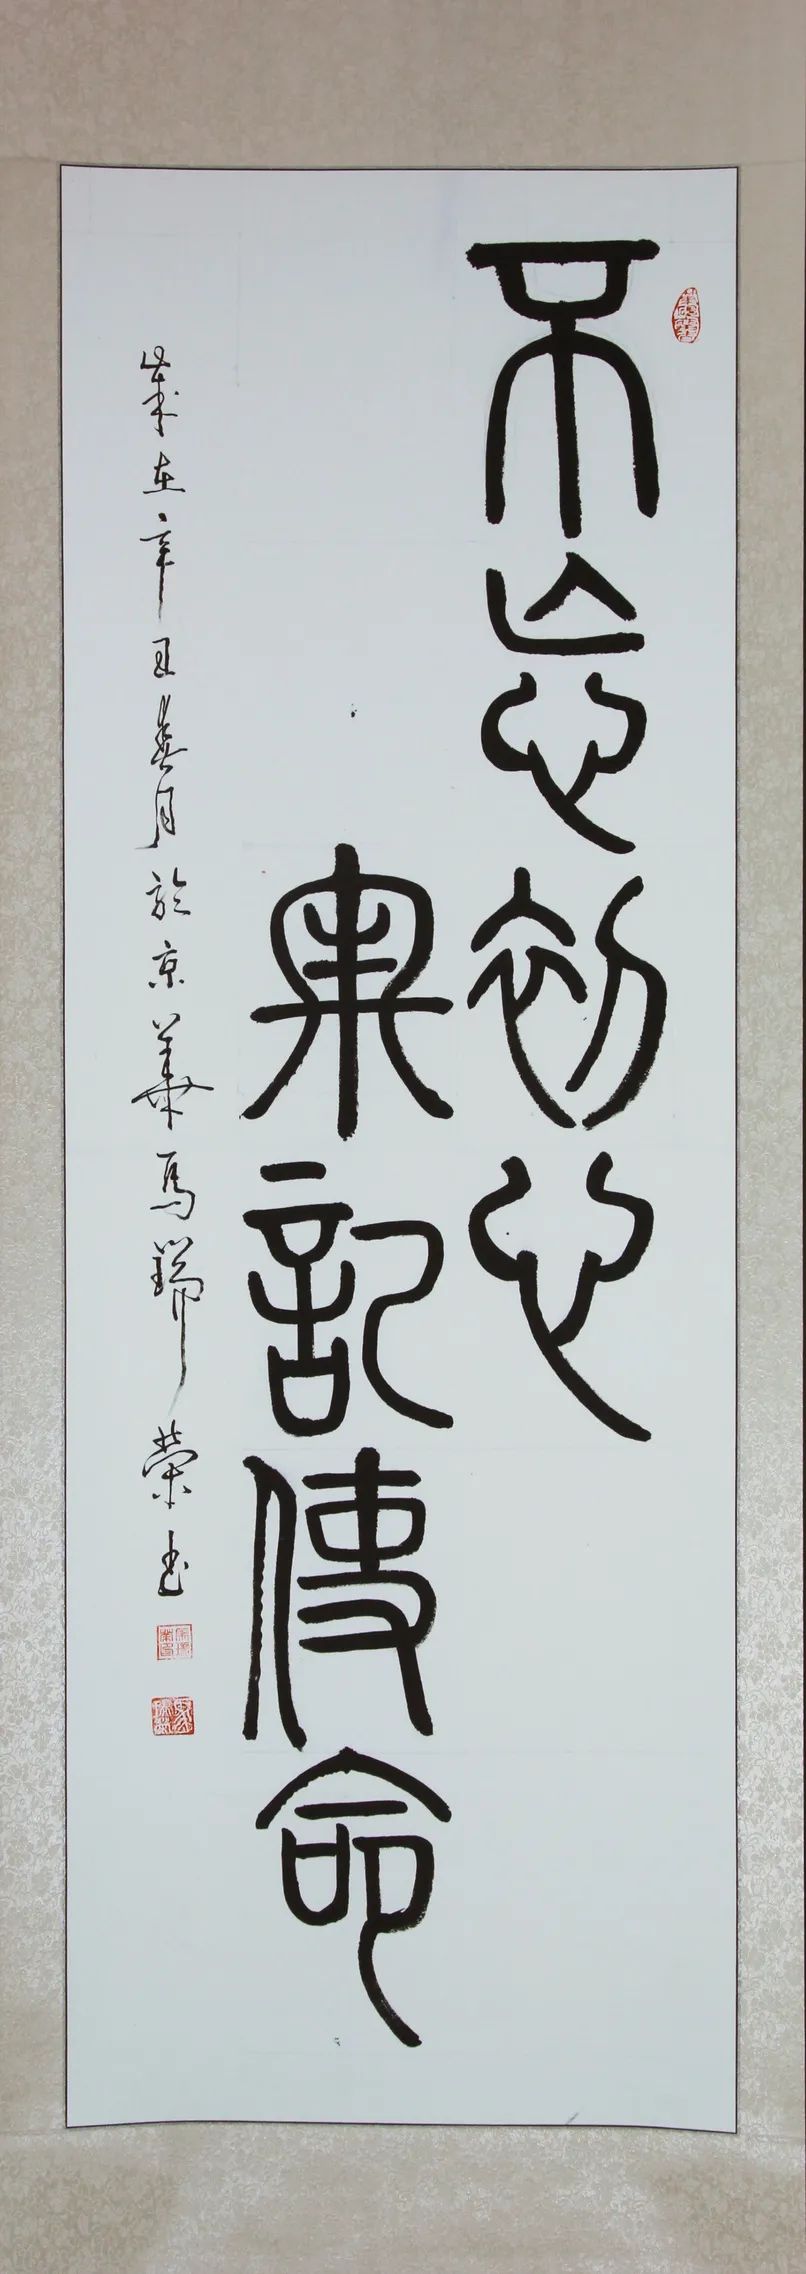 不忘初心
牢記使命
歲在辛丑春月於京華馬瑞榮书